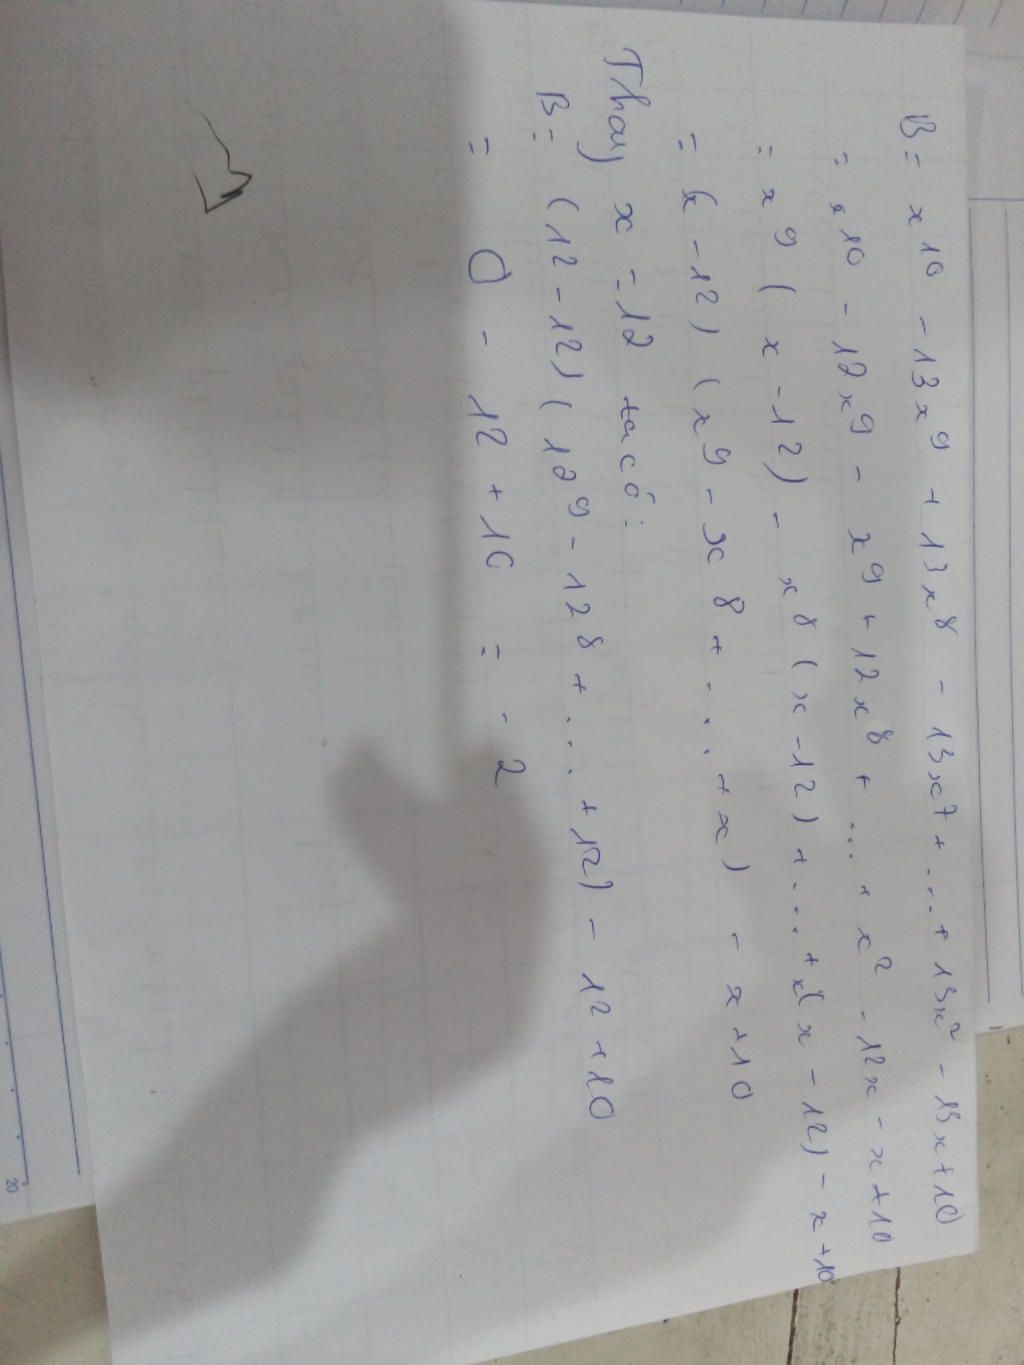 B = x^10 - 13x^9 + 13x^8 - 13x^7 + ... + 13x^2 - 13x + 10
= x^10 - 12x^9 - x^9 + 12x^8 + ... + x^2 - 12x - x + 10
= x^9 (x - 12) - x^8 (x - 12) + ... + x(x - 12) - x + 10
= (x - 12) (x^9 - x^8 + ... + x) - x + 10
Thay x = 12 ta có:
B = (12 - 12) (12^9 - 12^8 + ... + 12) - 12 + 10
= 0 - 12 + 10 = -2
20